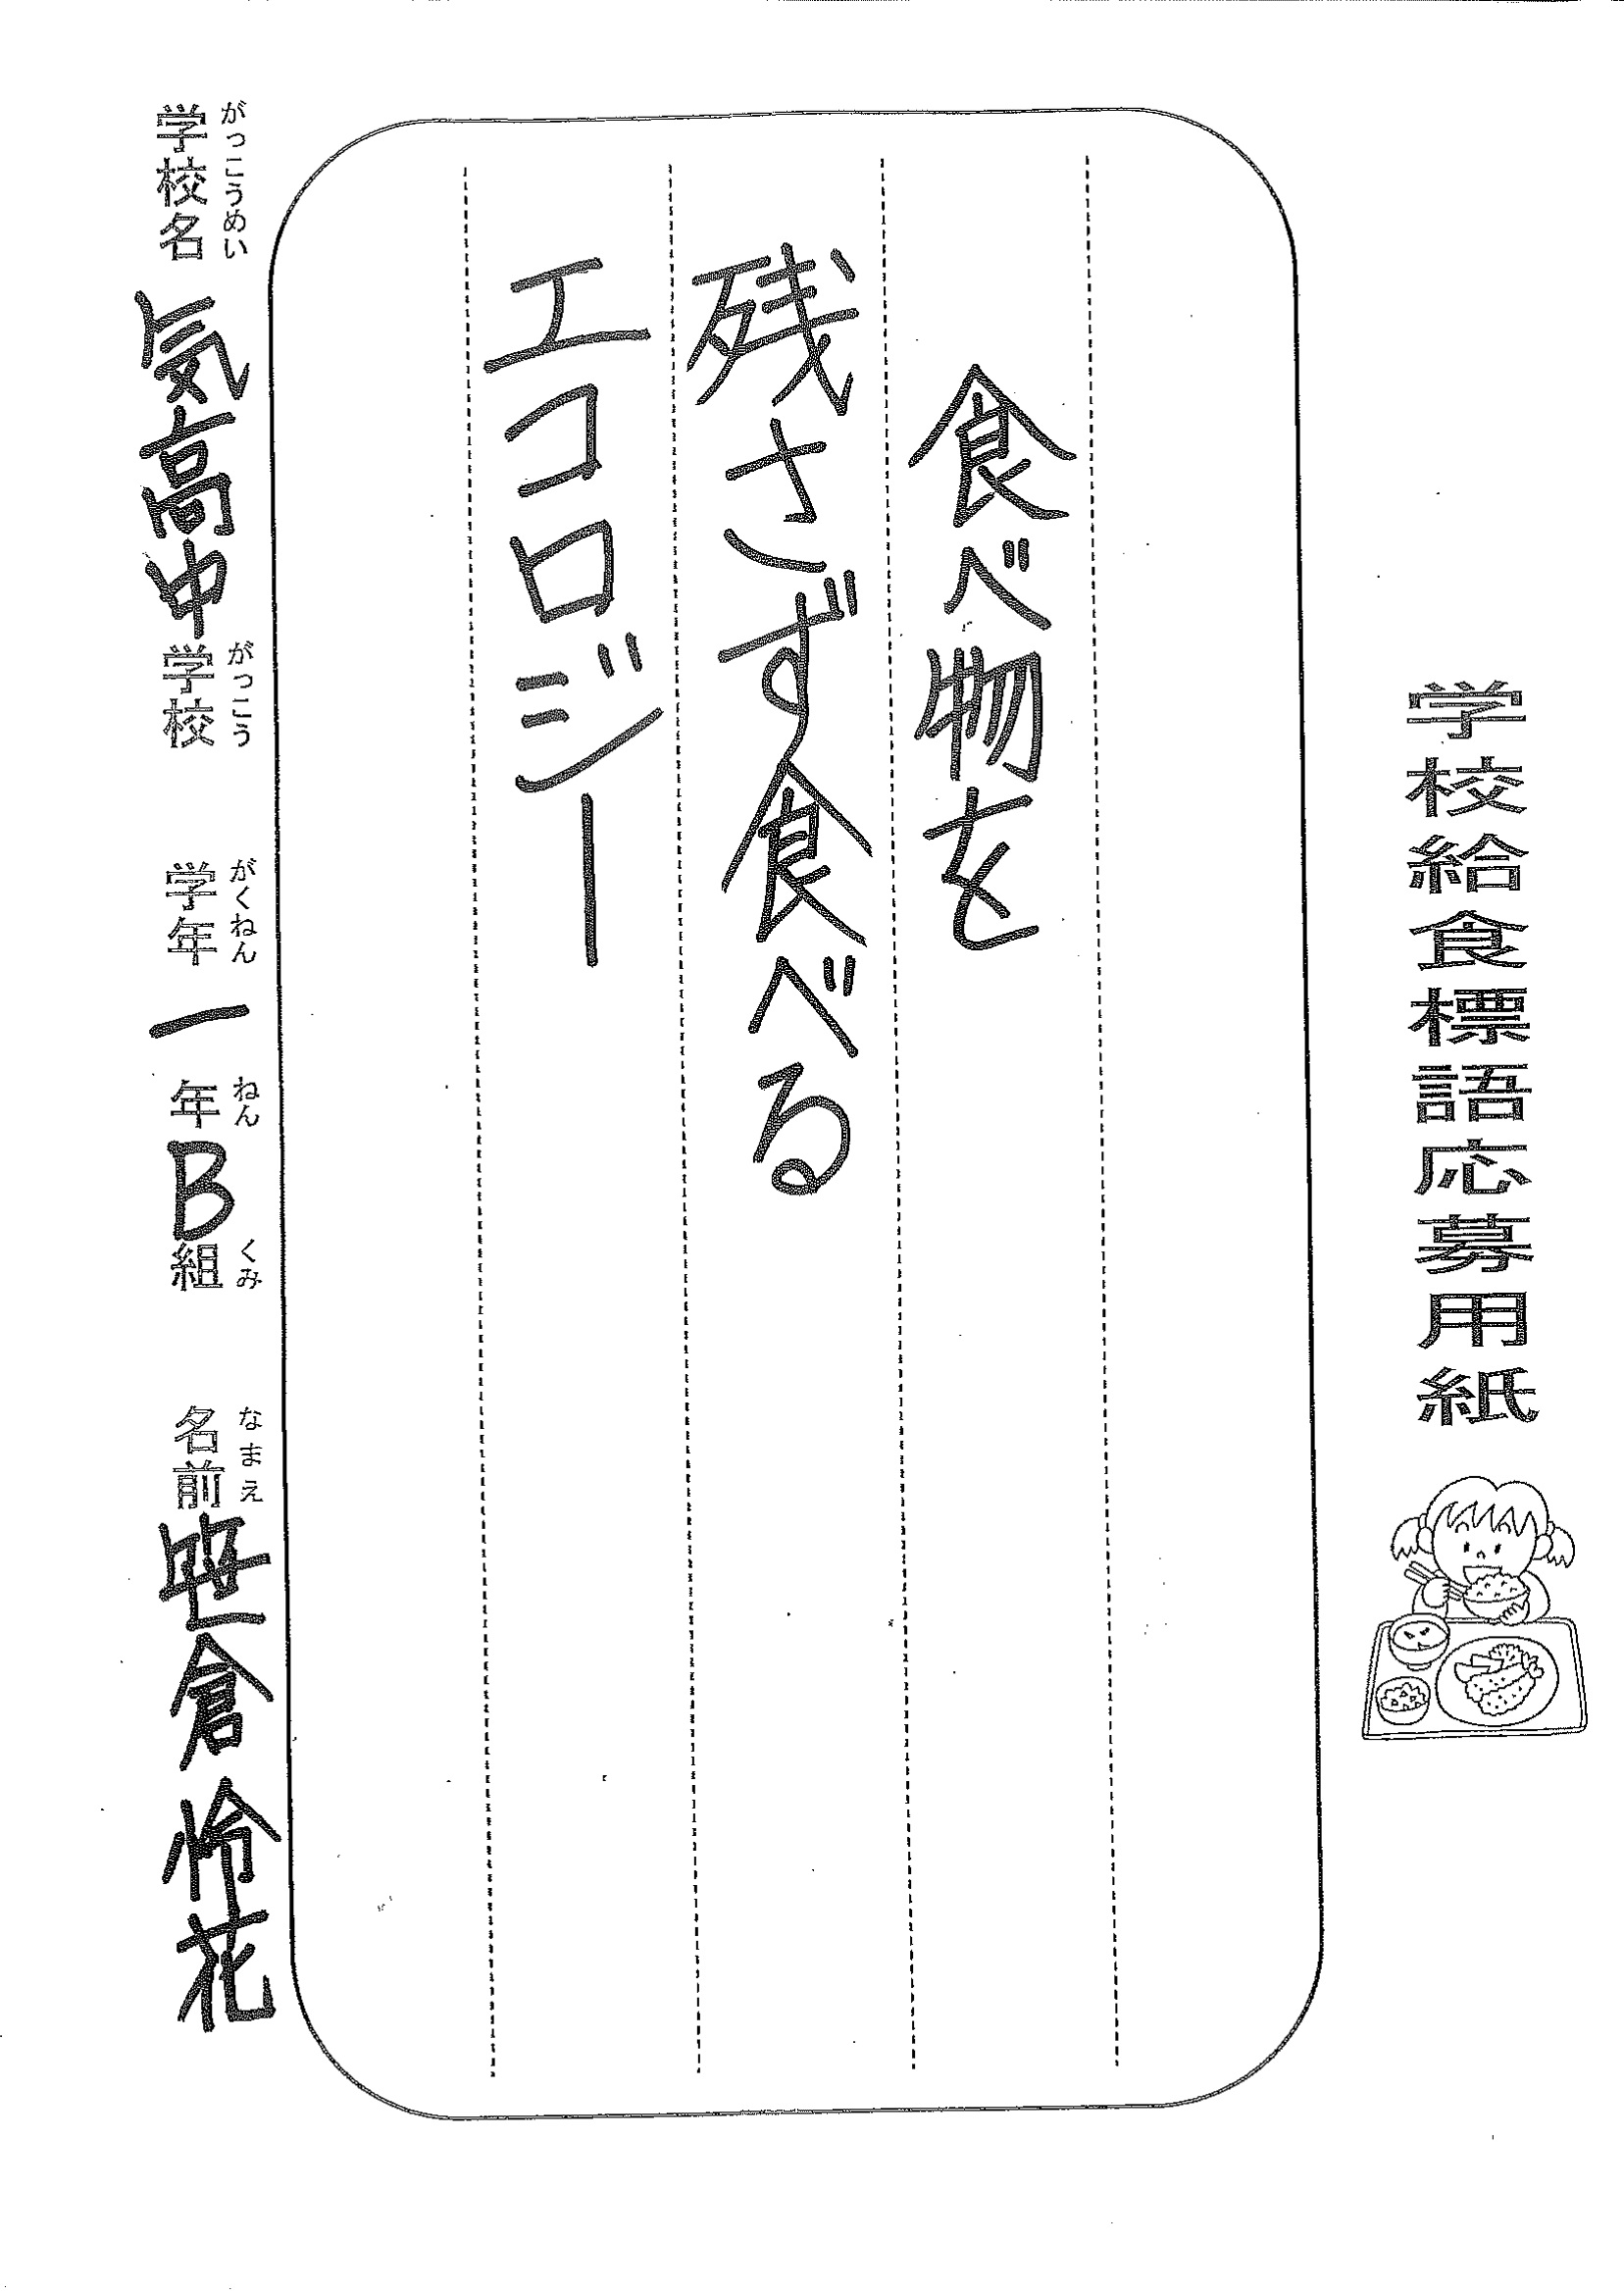 学校給食標語応募用紙
食べ物を
残さず食べる
エコロジー
がっこうめい がっこう がくねん ねん くみ なまえ
学校名 気高中学校 学年 一年B組 名前 笹倉怜花